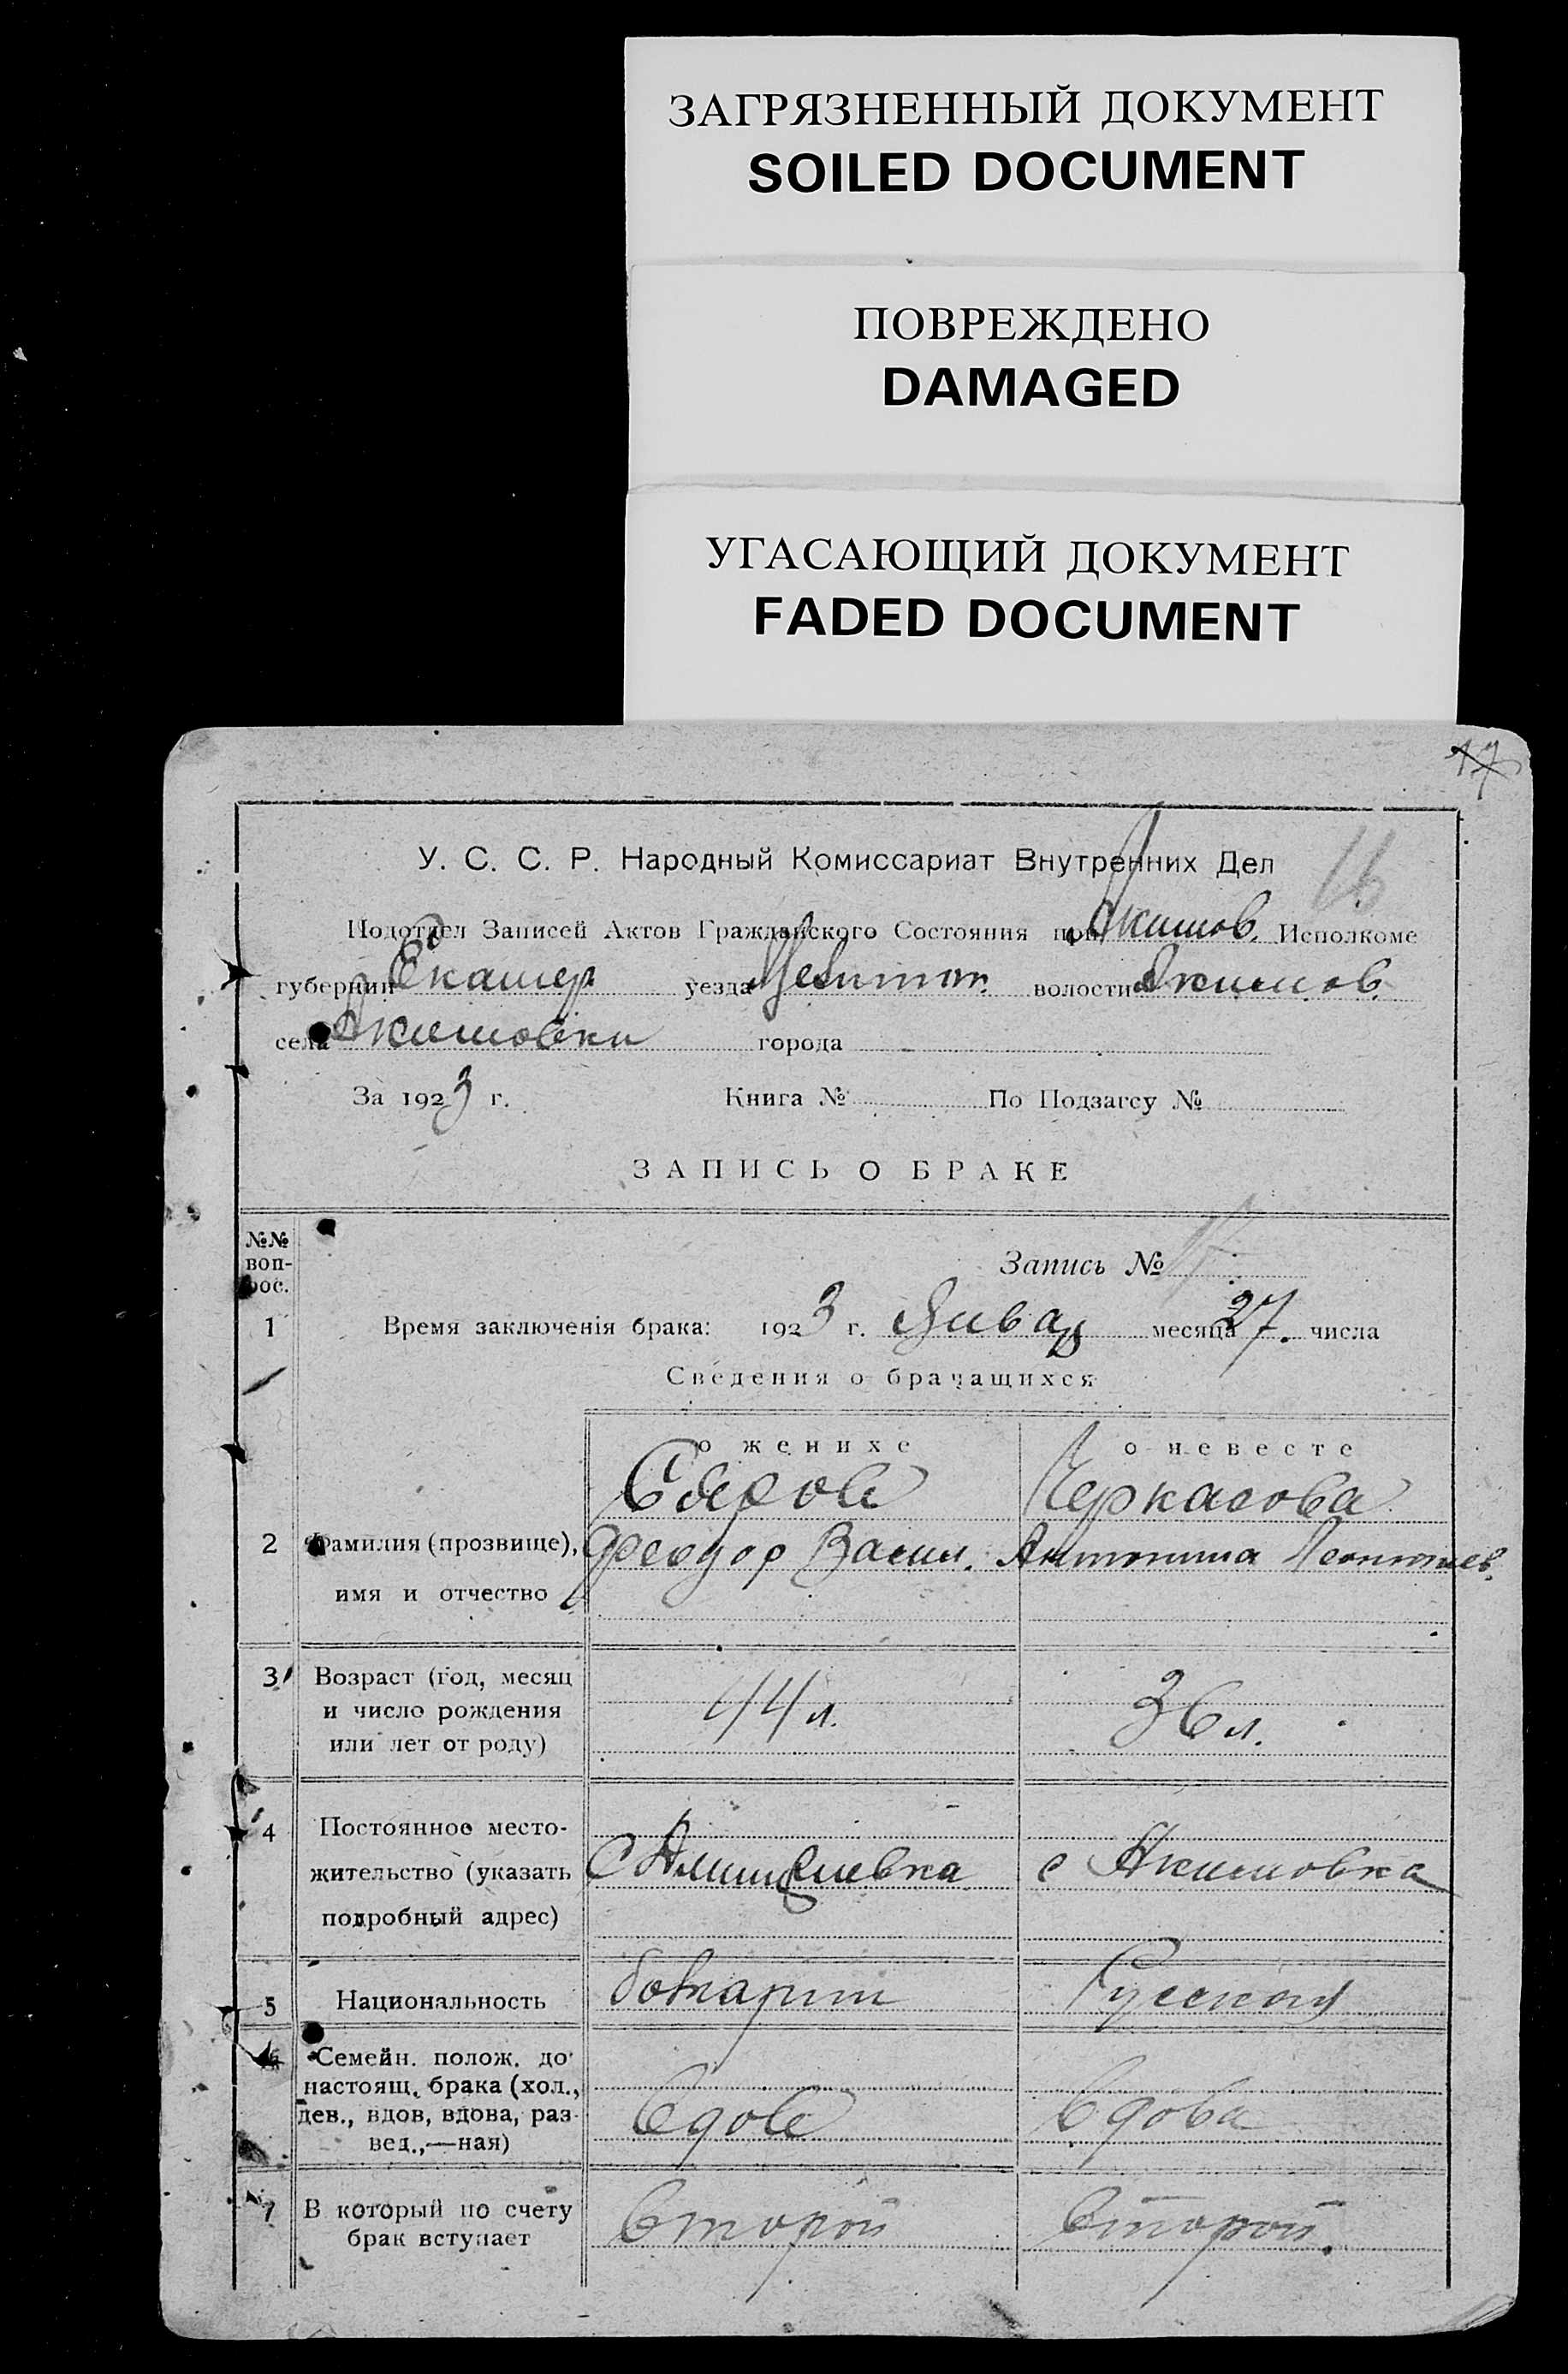 ЗАГРЯЗНЕННЫЙ ДОКУМЕНТ
SOILED DOCUMENT
ПОВРЕЖДЕНО
DAMAGED
УГАСАЮЩИЙ ДОКУМЕНТ
FADED DOCUMENT
17
16
У. С. С. Р. Народный Комиссариат Внутренних Дел
Подотдел Записей Актов Гражданского Состояния при Акимов. Исполкоме
губернии Екатер уезда Мелитоп. волости Акимов.
села Акимовки города
За 1923 г. Книга № По Подзагсу №
ЗАПИСЬ О БРАКЕ
№№ воп-рос.
Запись №
1 Время заключенія брака: 1923 г. Январ месяца 27. числа
Сведения о брачащихся
о женихе о невесте
Черкасова
2 Фамилия (прозвище), Феодор Васил. Антонина Леонтьев.
имя и отчество
3 Возраст (год, месяц
и число рождения 44 л. 36 л.
или лет от роду)
4 Постоянное место-
жительство (указать с с Акимовка
подробный адрес)
5 Национальность Русская
6 Семейн. полож. до
настоящ. брака (хол.,
дев., вдов, вдова, раз- Вдов Вдова
вед.,—ная)
7 В который по счету Второй Второй.
брак вступает